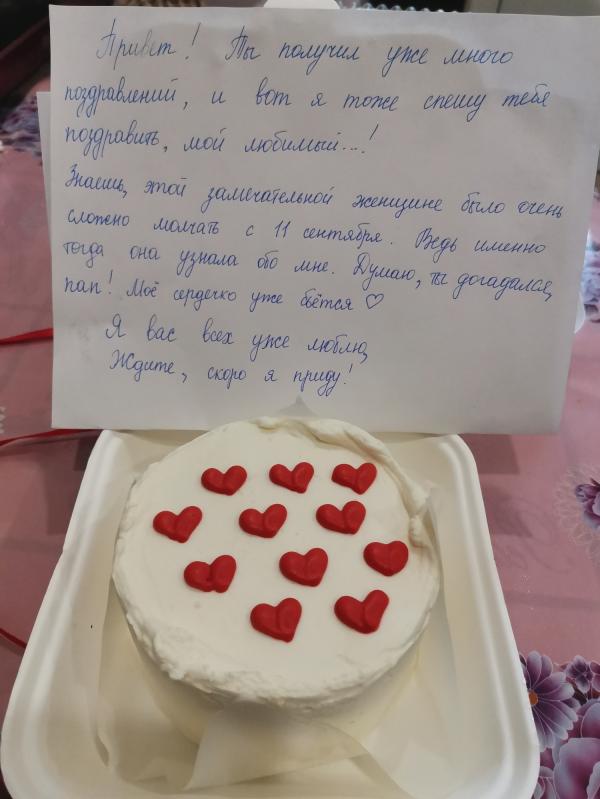 Привет! Ты получил уже много
поздравлений, и вот я тоже спешу тебя
поздравить, мой любимый...!
Знаешь, этой замечательной женщине было очень
сложно молчать с 11 сентября. Ведь именно
тогда она узнала обо мне. Думаю, ты догадался,
пап! Моё сердечко уже бьётся ♡
Я вас всех уже люблю,
Ждите, скоро я приду!